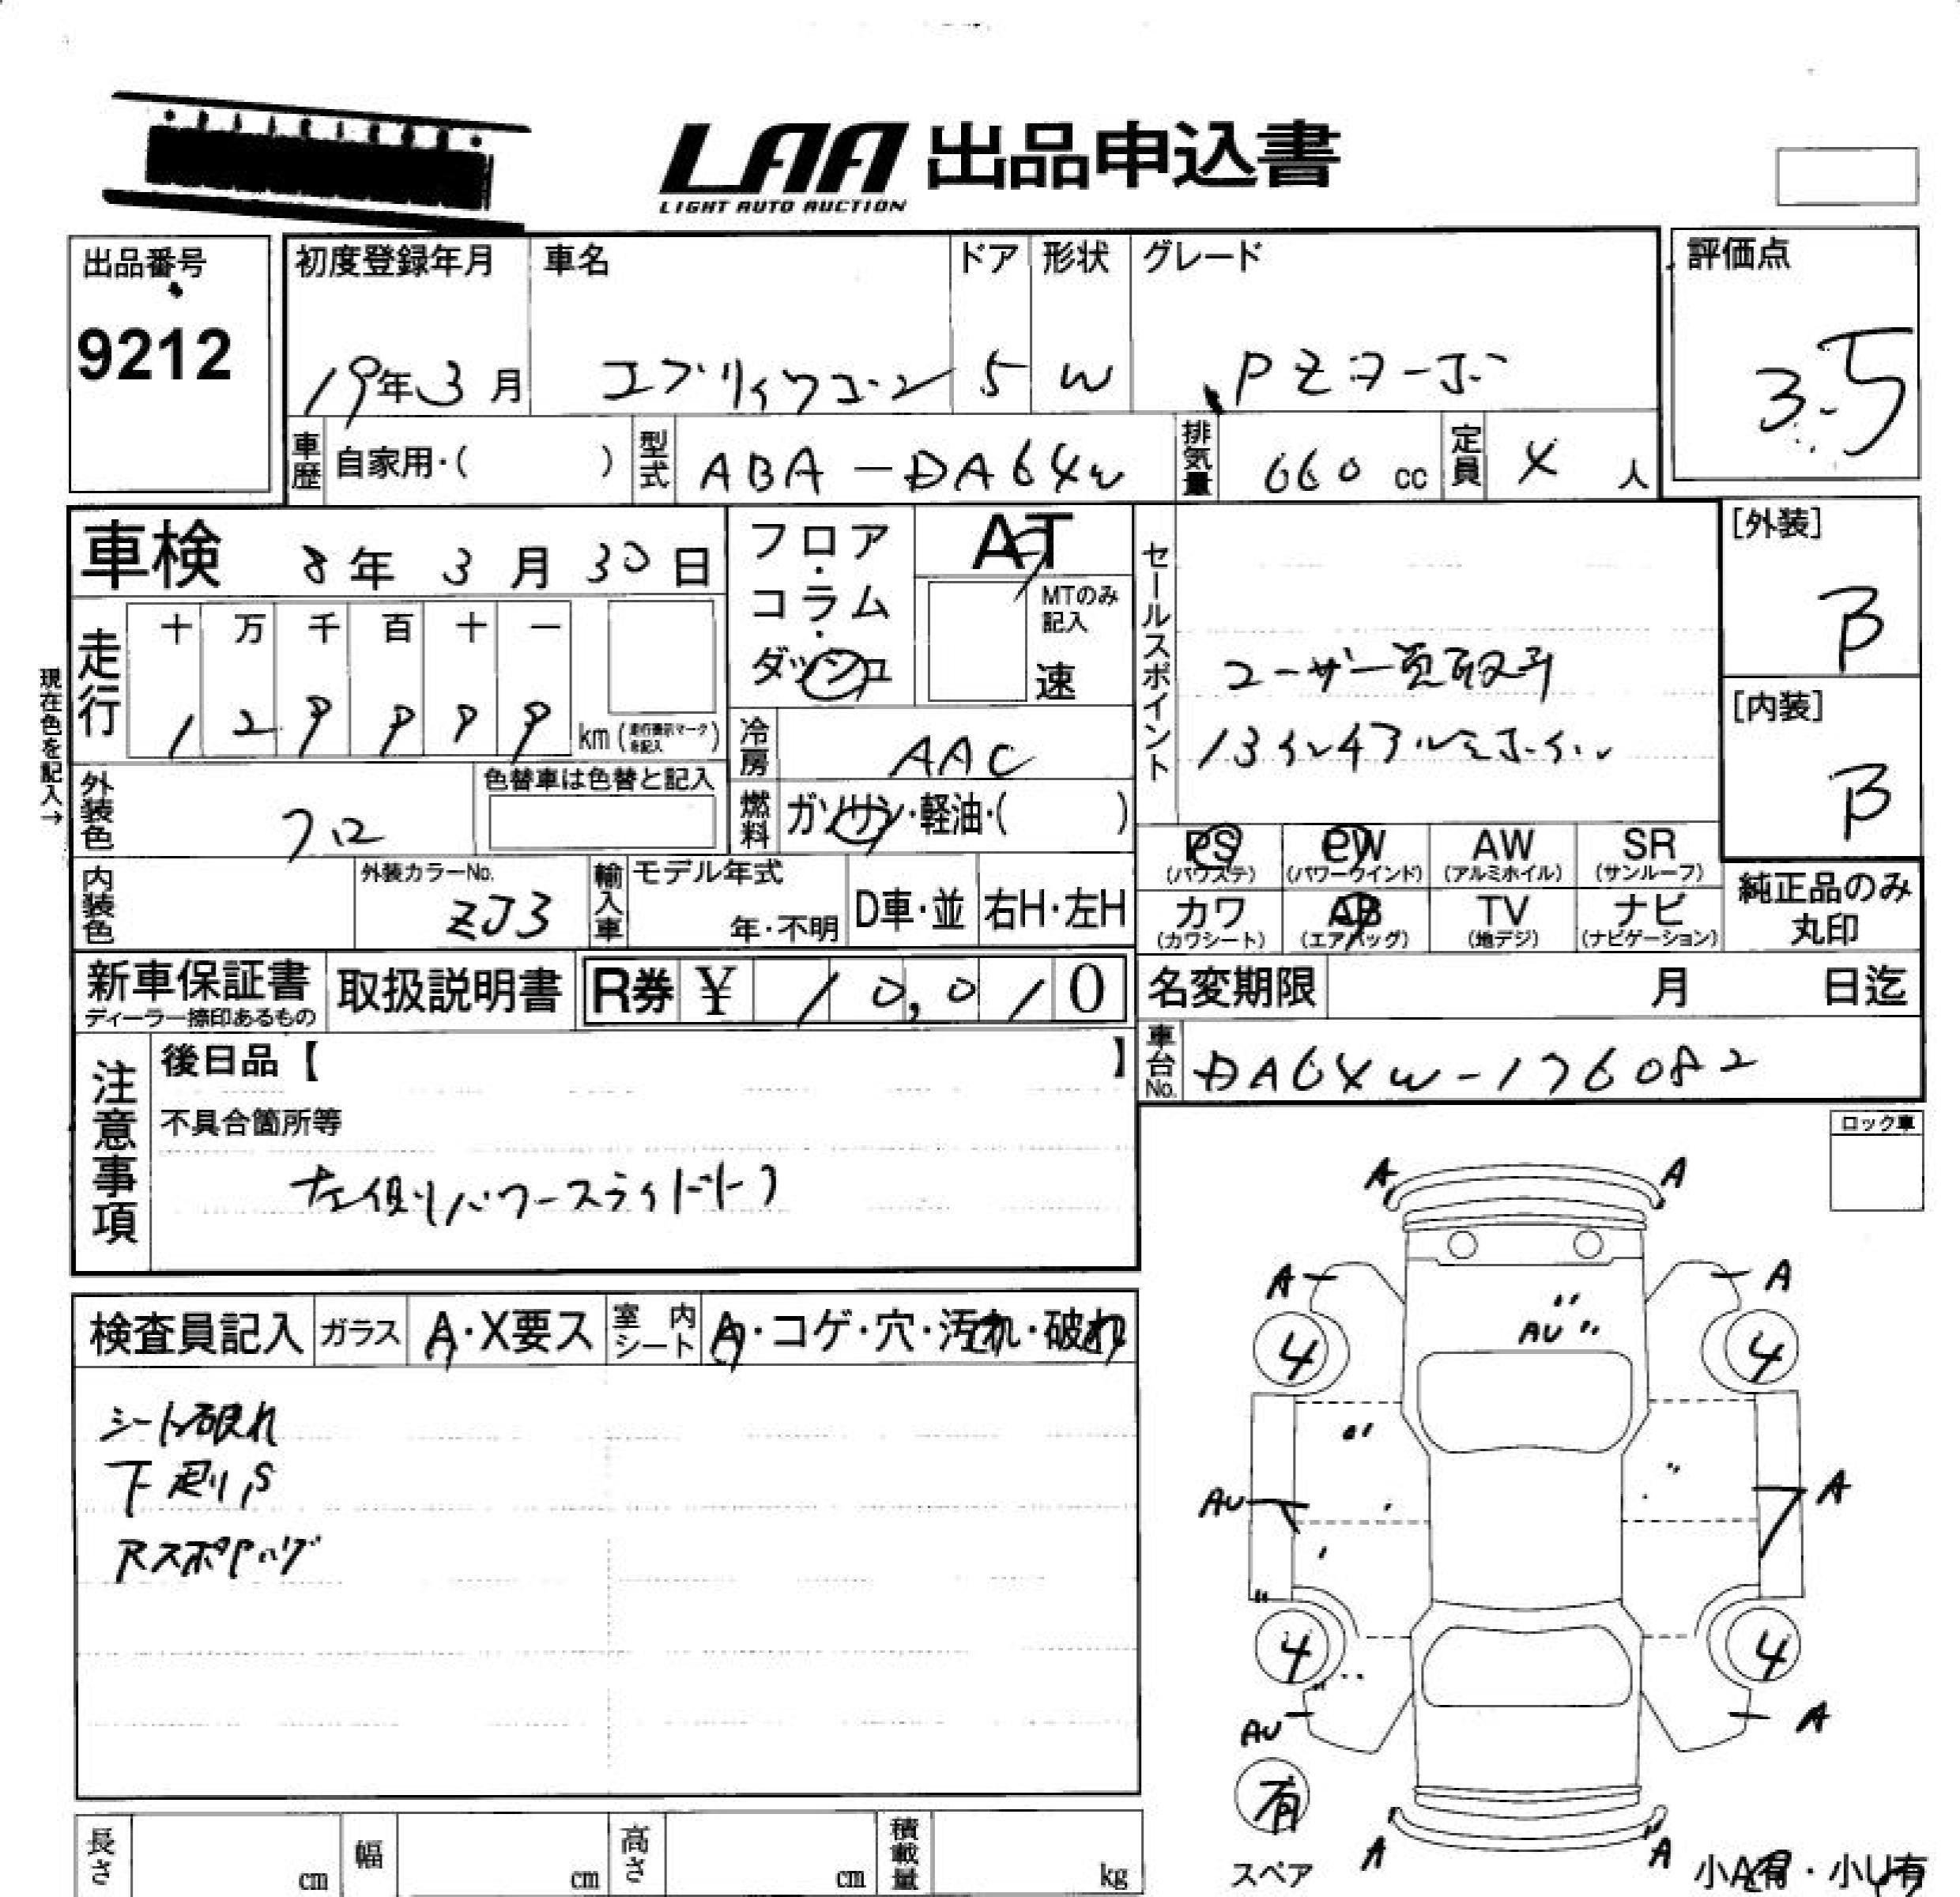 LAA 出品申込書
LIGHT AUTO AUCTION
出品番号
9212
初度登録年月 車名 ドア 形状 グレード
19年3月 エブリィワゴン 5 W PZターボ
評価点
3.5
車歴 自家用・( ) 型式 ABA-DA64W 排気量 660 cc 定員 4 人
車検 8年 3月 30日
フロア・コラム・ダッシュ
AT
MTのみ記入
速
走行 十 万 千 百 十 一
1 2 9 9 9 9 km (走行表示マークを記入)
現在色を記入→
冷房 AAC
外装色 クロ
色替車は色替と記入
燃料 ガソリン・軽油・( )
セールスポイント
ユーザー買取り
13インチアルミホイール
[外装]
B
[内装]
B
PS (パワステ) PW (パワーウインド) AW (アルミホイル) SR (サンルーフ)
カワ (カワシート) AB (エアバッグ) TV (地デジ) ナビ (ナビゲーション)
純正品のみ丸印
内装色
外装カラーNo.
ZJ3
輸入車 モデル年式
年・不明 D車・並 右H・左H
新車保証書
ディーラー捺印あるもの
取扱説明書 R券 ¥ 10,010
名変期限 月 日迄
車台No. DA64W-176082
注意事項
後日品【 】
不具合箇所等
左側パワースライドドア
ロック車
検査員記入 ガラス A・X要ス 室内シート A・コゲ・穴・汚れ・破れ
シート破れ
下廻りS
Rスポイラー
A A
A A
AU
4 4
AU A
4 4
AU A
有
スペア
A A
小A有・小U有
長さ cm 幅 cm 高さ cm 積載量 kg